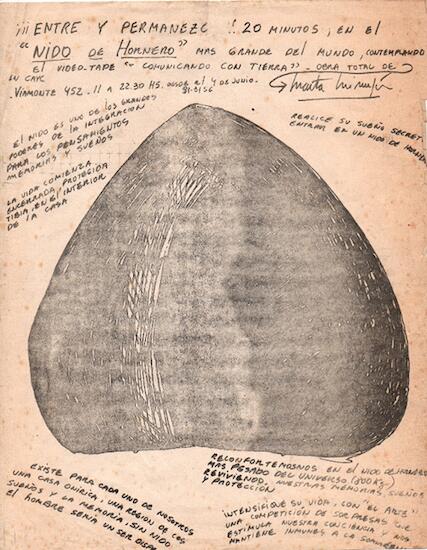 ¡¡¡ENTRE Y PERMANEZC !! 20 MINUTOS, EN EL
"NIDO DE HORNERO" MAS GRANDE DEL MUNDO, CONTEMPLANDO
EL VIDEO-TAPE "COMUNICANDO CON TIERRA" - OBRA TOTAL DE
EN CAYC
VIAMONTE 452 - 11 A 22.30 HS. DESDE EL 4 DE JUNIO.
31-31-56
Marta Minujín
REALICE SU SUEÑO SECRET
ENTRAR EN UN NIDO DE HORNERO
EL NIDO ES UNO DE LOS GRANDES
PODERES DE LA INTEGRACION
PARA LOS PENSAMIENTOS
MEMORIAS Y SUEÑOS
LA VIDA COMIENZA
ENCERRADA, PROTEGIDA
TIBIA, EN EL INTERIOR
DE LA CASA
RECONFORTEMOSNOS EN EL NIDO DE HORNERO
MAS PESADO DEL UNIVERSO (800 KG)
REVIVIENDO, NUESTRAS MEMORIAS, SUEÑOS
Y PROTECCIÓN
EXISTE PARA CADA UNO DE NOSOTROS
UNA CASA ONIRICA, UNA REGION DE LOS
SUEÑOS Y LA MEMORIA. SIN NIDO
EL HOMBRE SERIA UN SER
INTENSIFIQUE SU VIDA, CON EL ARTE"
UNA COMPETICIÓN DE SORPRESAS QUE
ESTIMULA NUESTRA CONCIENCIA Y NOS
MANTIENE INMUNES A LA